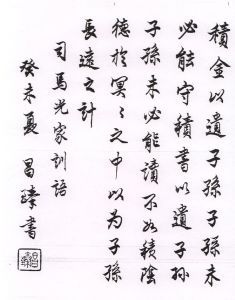 積金以遺子孫子孫未
必能守積書以遺子孫
子孫未必能讀不如積陰
德於冥〻之中以為子孫
長遠之計
司馬光家訓語
癸未夏 昌臻書